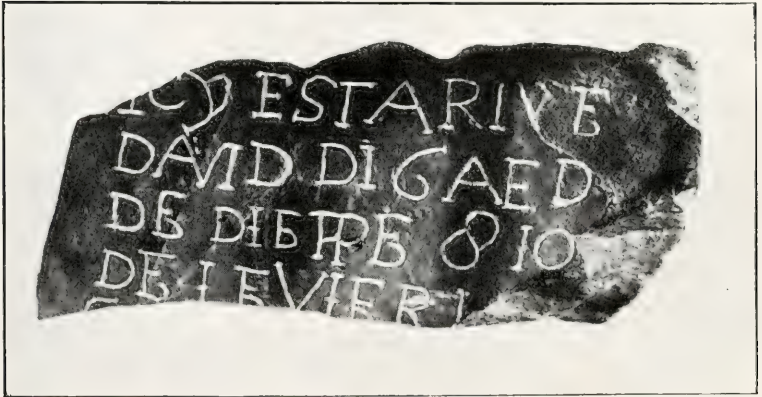 ICY EST ARIVE
DAVID DIGAED
DE DIEPPE 8 10
DE IEVIER